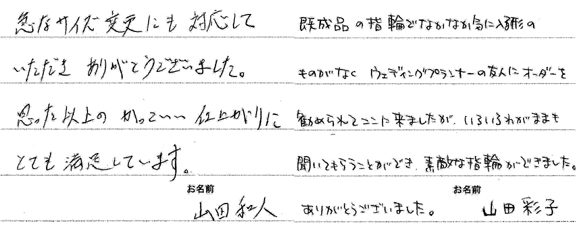 急なサイズ変更にも対応して
いただき ありがとうございました。
思った以上の かっこいい 仕上がりに
とても 満足しています。
お名前
山田和人
既成品の指輪でなかなか気に入る形の
ものがなく ウェディングプランナーの友人にオーダーを
勧められてここに来ましたが、いろいろわがままも
聞いてもらうことができ、素敵な指輪ができました。
ありがとうございました。
お名前
山田彩子